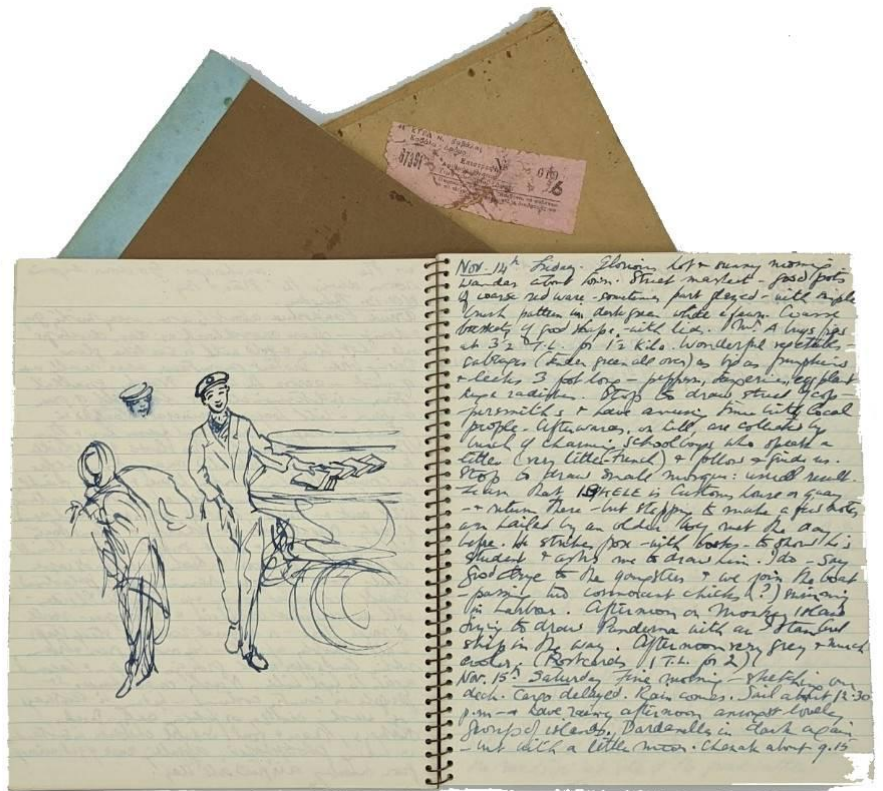 Nov. 14th Friday. Glorious hot & sunny morning
wander about town. Street market - good pots
of coarse red ware - sometimes part glazed - with simple
brush pattern in dark green white & fawn. Coarse
baskets of good shape - with lids. Mrs A buys figs
at 3½ T.L. for 1½ kilo. Wonderful vegetables -
cabbages (tender green all over) as big as pumpkins
& leeks 3 foot long - peppers, egg plant
huge radishes. Stop to draw street of cop-
persmiths & have amusing time with local
people - Afterwards, on hill, are collected by
bunch of charming schoolboys who speak a
little (very little French) & follow & guide us.
Stop to draw small mosque: usual result.
Learn that ISHELE is Customs house or quay
- & return there - but stopping to make a few notes
am hailed by an older boy met the day
before. He strikes pose - with books - to show he's
student & asks me to draw him. I do - Say
good bye to the youngsters & we join the boat
- passing two cormorant chicks (?) swimming
in harbour. Afternoon on Monkey Island
trying to draw Panderma with an Istanbul
ship in the way. Afternoon very grey & much
cooler. (Postcards 1 T.L. for 2)
Nov. 15th Saturday Fine morning - sketching on
deck. Cargo delayed. Rain comes. Sail about 12.30
p.m - & have rainy afternoon amongst lovely
groups of islands. Dardanelles in dark again
- but with a little moon. Chanak about 9.15
No
6